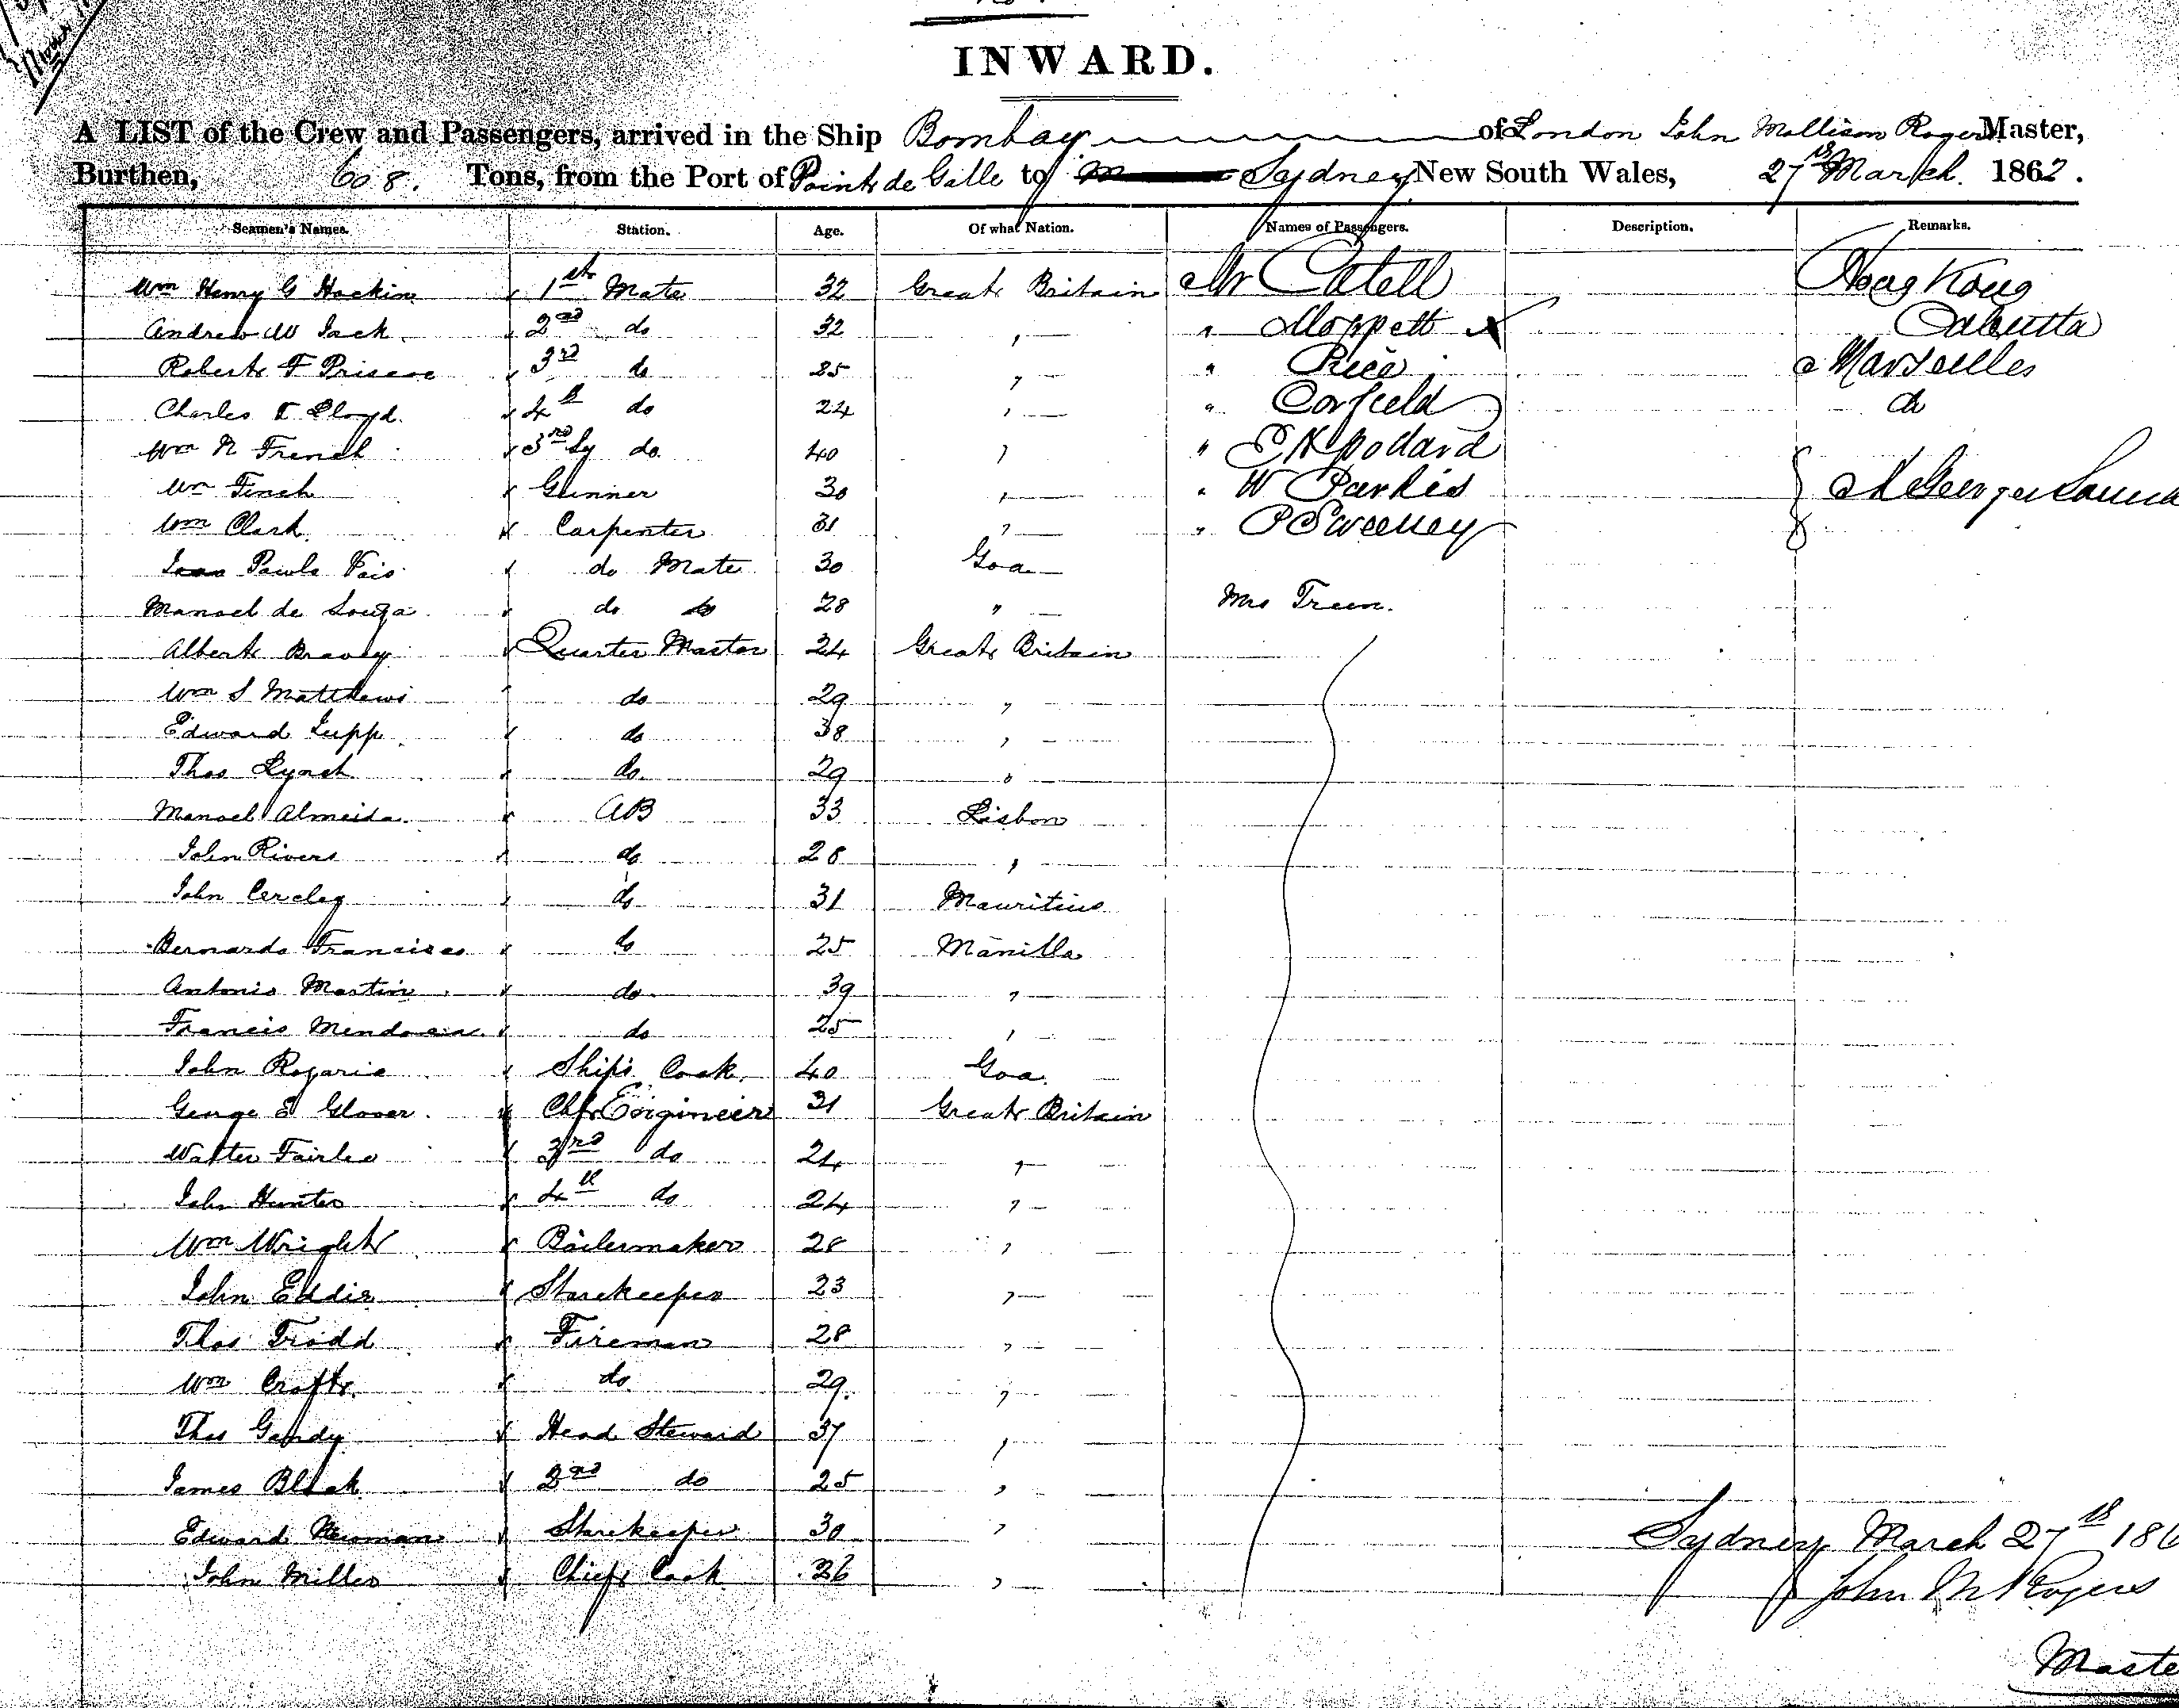 INWARD.
A LIST of the Crew and Passengers, arrived in the Ship Bombay of London John Mollison Rogers Master,
Burthen, 608. Tons, from the Port of Point de Galle to Sydney New South Wales, 27th March. 1862.
Seamen's Names. Station. Age. Of what Nation. Names of Passengers. Description. Remarks.
Wm Henry G Hockin 1st Mate 32 Great Britain Mr Catell Hong Kong
Andrew W Jack 2nd do 32 " " Moppett X Calcutta
Robert F Briscoe 3rd do 25 " " Rice Marseilles
Charles T Lloyd 4th do 24 " " Corfield do
Wm N French 3rd do 40 " " E H
Wm Finch Gunner 30 " " W Parkes
Wm Clark Carpenter 31 " " P Sweeney
Paulo Vais do Mate 30 Goa
Manoel de Souza do do 28 " Mrs Treen.
Albert Bravey Quarter Master 24 Great Britain
Wm S Matthews do 29 "
Edward Lupp do 38 "
Thos Lynch do 29 "
Manoel Almeida AB 33 Lisbon
John Rivers do 28 "
John do 31 Mauritius
Bernardo Francisco do 25 Manilla
Antonio Martin do 39 "
Francis do 25 "
John Rozario Ship's Cook 40 Goa
George E Glover Chf Engineer 31 Great Britain
Walter Fairlie 3rd do 24 "
John Hunter 4th do 24 "
Wm Wright Boilermaker 28 "
John Eddie Storekeeper 23 "
Thos Trodd Fireman 28 "
Wm Croft do 29 "
Thos Gandy Head Steward 37 "
James Black 2nd do 25 "
Edward Newman Storekeeper 30 "
John Miller Chief Cook 26 "
Sydney March 27th 186
John M Rogers
Maste